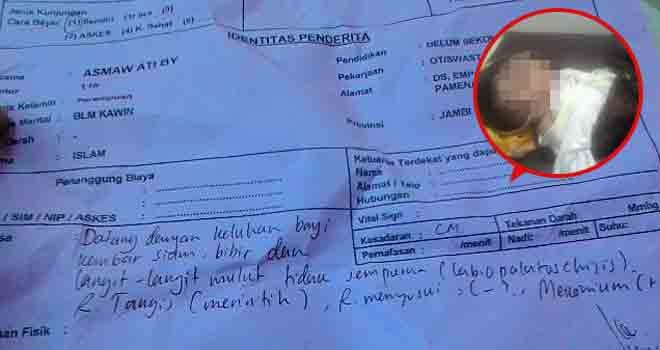 Jenis Kunjungan
Cara Bayar (1) Sendiri (3) SKS (5)
(2) ASKES (4) K. Sehat (6)
IDENTITAS PENDERITA
ASMAW ATI BY
Perempuan
BLM KAWIN
-
ISLAM
Pendidikan : BELUM SEKO
Pekerjaan : OT/SWAST
Alamat : DS. EMP
PAMENA
Provinsi : JAMBI
Penanggung Biaya
/ SIM / NIP / ASKES
Terdekat yang dapa
Nama :
Alamat / Telp :
Hubungan :
Vital Sign :
Kesadaran : CM
Tekanan Darah : MmHg
Pernafasan : /menit Nadi: /menit Suhu:
Datang dengan keluhan bayi
kembar, bibir dan
langit-langit mulut tidak sempurna (labiopalatoschizis).
R. Tangis (merintih), R. menyusui : (-),
an Fisik :